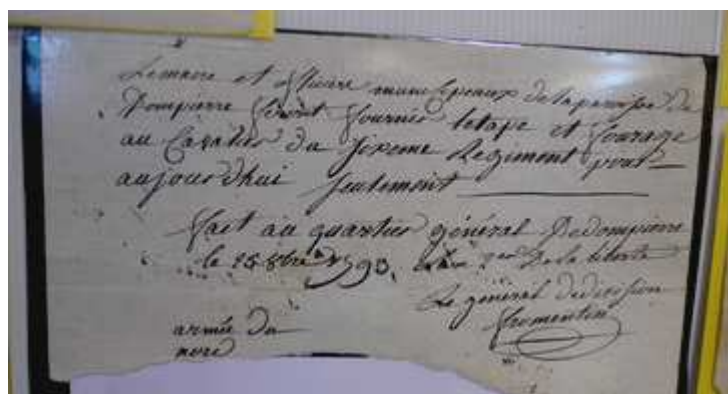 Lemaire et officiers municipeaux de la paroisse de
Dompierre feront fournir letape et fourage
au Cavalier du sixieme Regiment pour
aujourdhui seulement
fait au quartier général De dompierre
le 25 8bre 1793. De la liberté
Le général de division
fromentin
armée du
nord